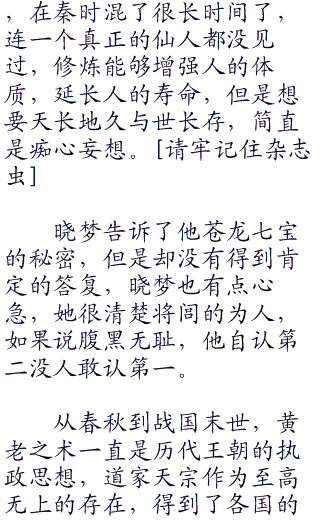 ，在秦时混了很长时间了，
连一个真正的仙人都没见
过，修炼能够增强人的体
质，延长人的寿命，但是想
要天长地久与世长存，简直
是痴心妄想。[请牢记住杂志
虫]
晓梦告诉了他苍龙七宝
的秘密，但是却没有得到肯
定的答复，晓梦也有点心
急，她很清楚将闾的为人，
如果说腹黑无耻，他自认第
二没人敢认第一。
从春秋到战国末世，黄
老之术一直是历代王朝的执
政思想，道家天宗作为至高
无上的存在，得到了各国的